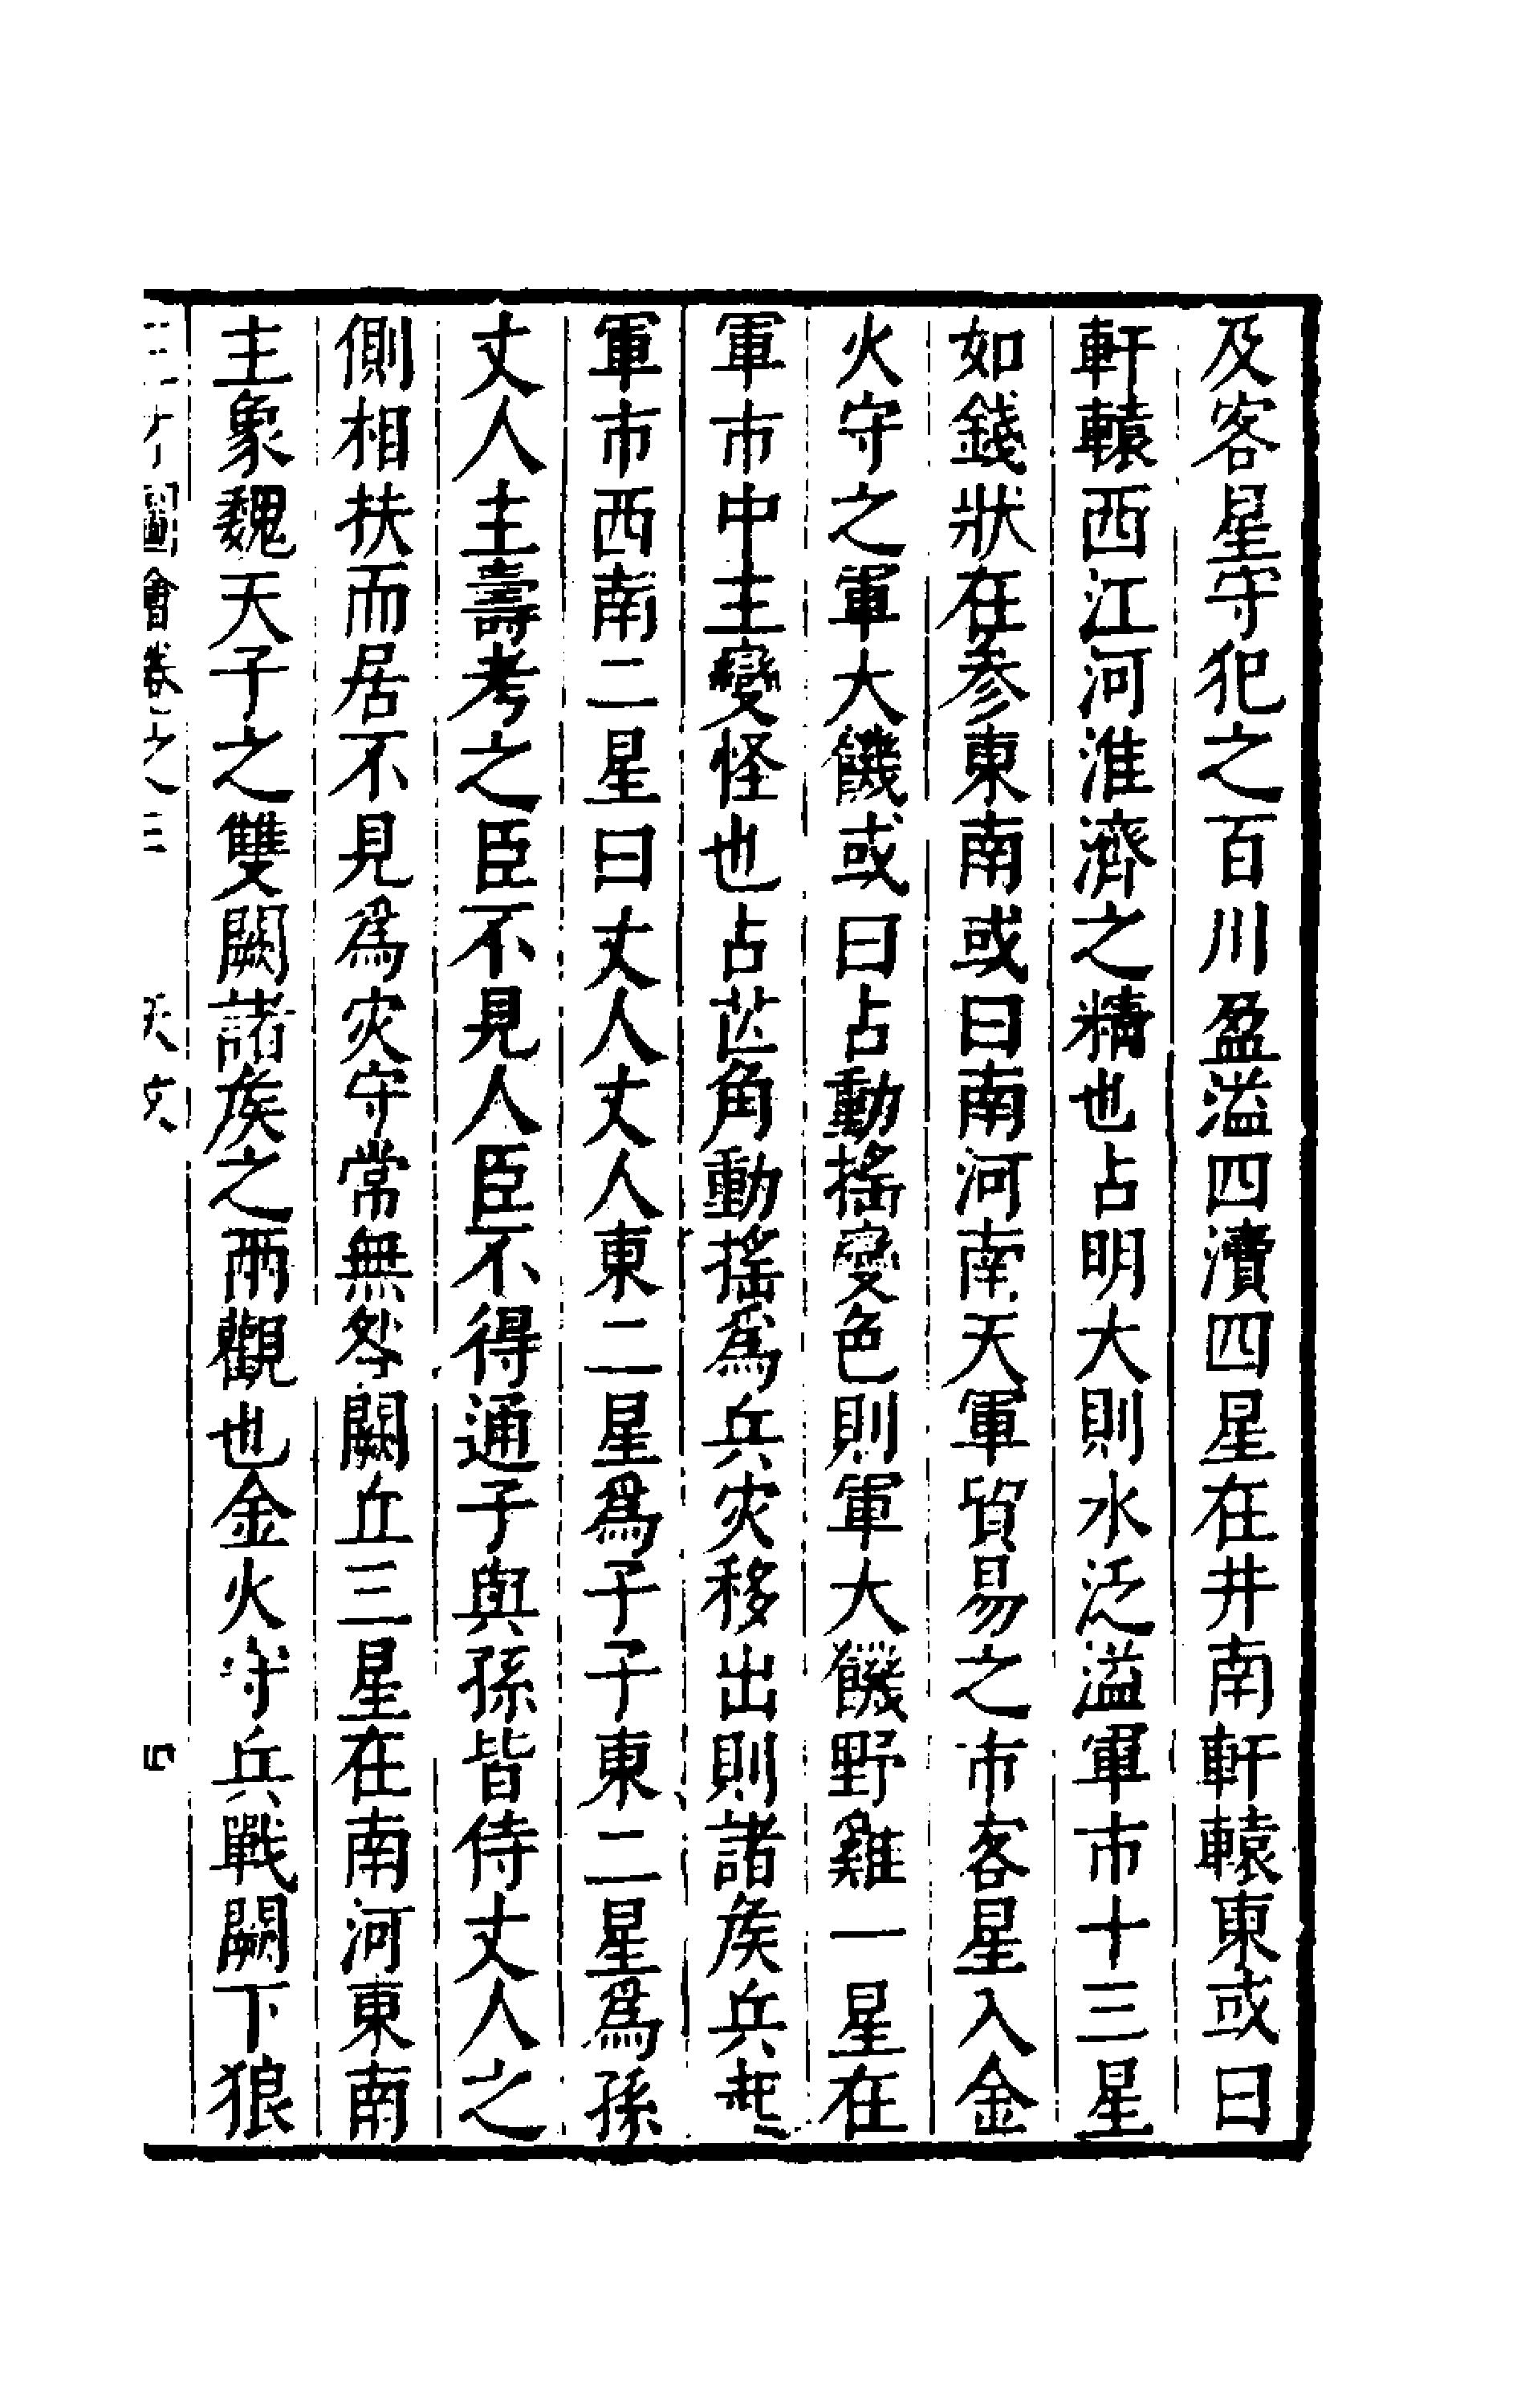 及客星守犯之百川盈溢四瀆四星在井南軒轅東或曰
軒轅西江河淮濟之精也占明大則水泛溢軍市十三星
如錢狀在参東南或曰南河南天軍貿易之市客星入金
火守之軍大饑或曰占動搖變色則軍大饑野雞一星在
軍市中主變怪也占芒角動搖爲兵灾移出則諸矦兵起
軍市西南二星曰丈人丈人東二星爲子子東二星爲孫
丈人主壽考之臣不見人臣不得通子與孫皆侍丈人之
側相扶而居不見爲灾守常無咎闕丘三星在南河東南
主象魏天子之雙闕諸矦之兩觀也金火守兵戰闕下狼
三才圖會卷之三 天文 四